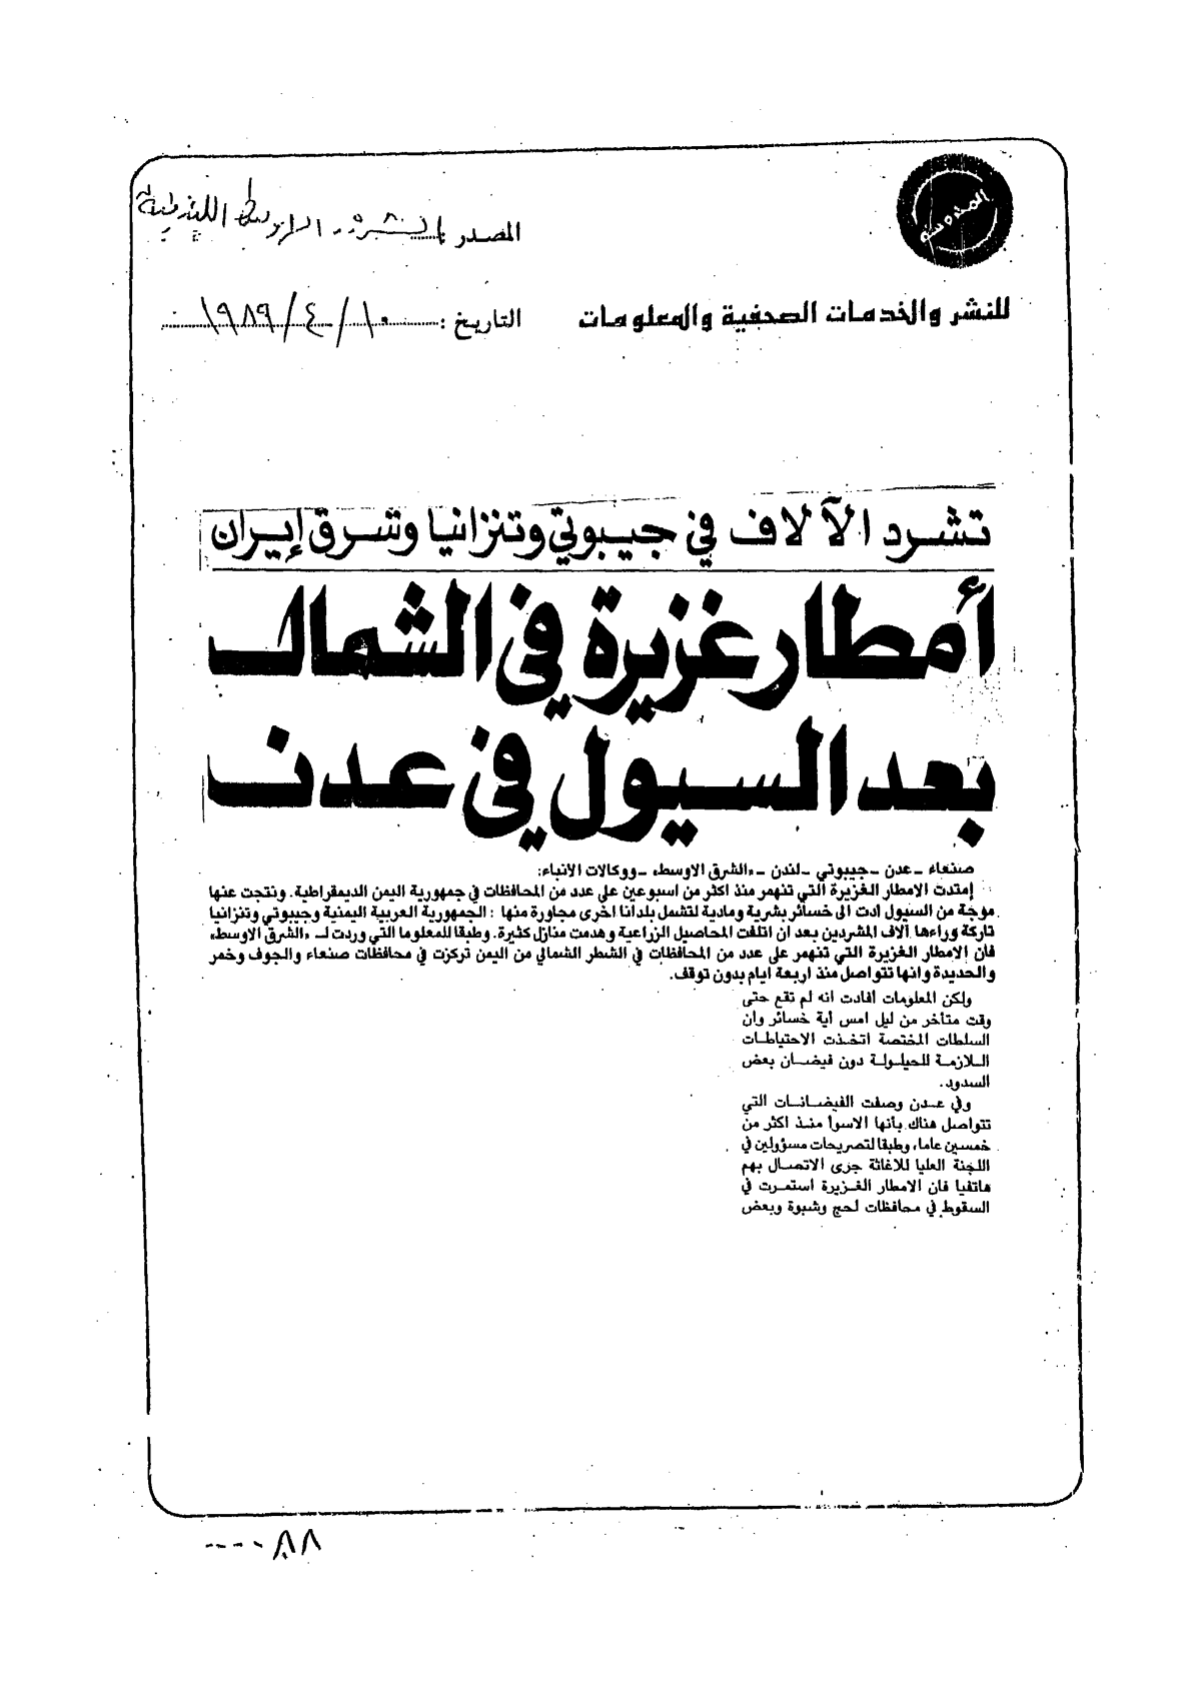 المدوسه
المصدر : الشرق الاوسط اللندنية
للنشر والخدمات الصحفية والمعلومات
التاريخ : ١٠/٤/١٩٨٩
تشرد الآلاف في جيبوتي وتنزانيا وشرق إيران
أمطار غزيرة في الشمال
بعد السيول في عدن
صنعاء - عدن - جيبوتي - لندن - «الشرق الاوسط» - ووكالات الانباء:
إمتدت الامطار الغزيرة التي تنهمر منذ اكثر من اسبوعين على عدد من المحافظات في جمهورية اليمن الديمقراطية. ونتجت عنها
موجة من السيول ادت الى خسائر بشرية ومادية لتشمل بلدانا اخرى مجاورة منها : الجمهورية العربية اليمنية وجيبوتي وتنزانيا
تاركة وراءها آلاف المشردين بعد ان اتلفت المحاصيل الزراعية وهدمت منازل كثيرة. وطبقا للمعلوما التي وردت لـ «الشرق الاوسط»
فان الامطار الغزيرة التي تنهمر على عدد من المحافظات في الشطر الشمالي من اليمن تركزت في محافظات صنعاء والجوف وخمر
والحديدة وانها تتواصل منذ اربعة ايام بدون توقف.
ولكن المعلومات افادت انه لم تقع حتى
وقت متأخر من ليل امس أية خسائر وان
السلطات المختصة اتخذت الاحتياطات
اللازمة للحيلولة دون فيضان بعض
السدود.
وفي عدن وصفت الفيضانات التي
تتواصل هناك بأنها الاسوأ منذ اكثر من
خمسين عاما، وطبقا لتصريحات مسؤولين في
اللجنة العليا للاغاثة جرى الاتصال بهم
هاتفيا فان الامطار الغزيرة استمرت في
السقوط في محافظات لحج وشبوة وبعض
٠٠٠٠٨٨